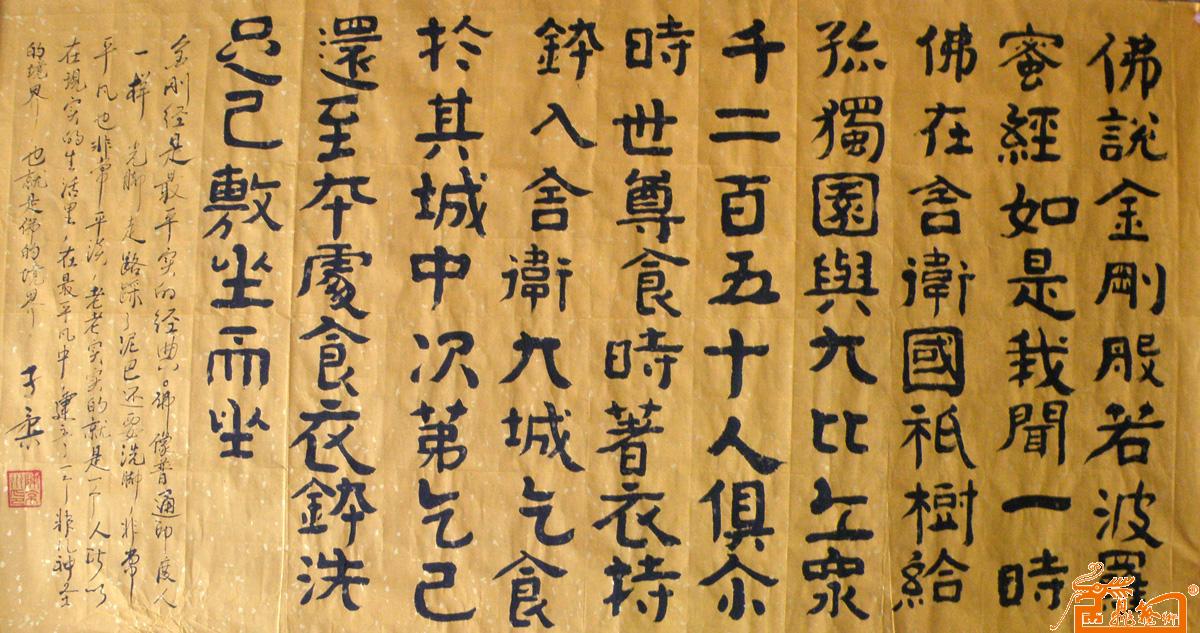 佛說金剛般若波羅
蜜經如是我聞一時
佛在舍衛國祇樹給
孤獨園與大比丘眾
千二百五十人俱尒
時世尊食時著衣持
鉢入舍衛大城乞食
於其城中次第乞已
還至本處食衣鉢洗
足已敷坐而坐
金刚经是最平实的经典。佛像普通印度人
一样 光脚走路踩了泥巴还要洗脚 非常
平凡也非常平淡 老老实实的就是一个人所以
在现实的生活里 在最平凡中 建立了一个非凡神圣
的境界 也就是佛的境界